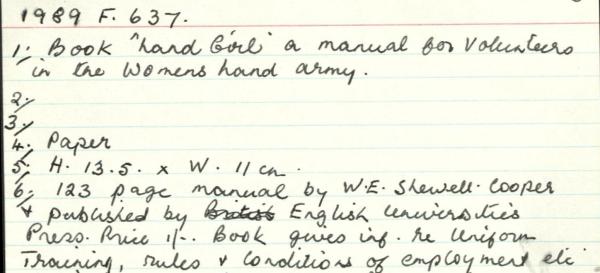 1989 F. 637.
1: Book "Land Girl" a manual for Volunteers
in the Womens Land army.
2:
3:
4: Paper
5: H. 13.5. x W. 11 cm.
6: 123 page manual by W.E. Shewell-Cooper
+ published by British English Universities
Press. Price 1/-. Book gives inf. re Uniform
Training, rules + conditions of employment etc